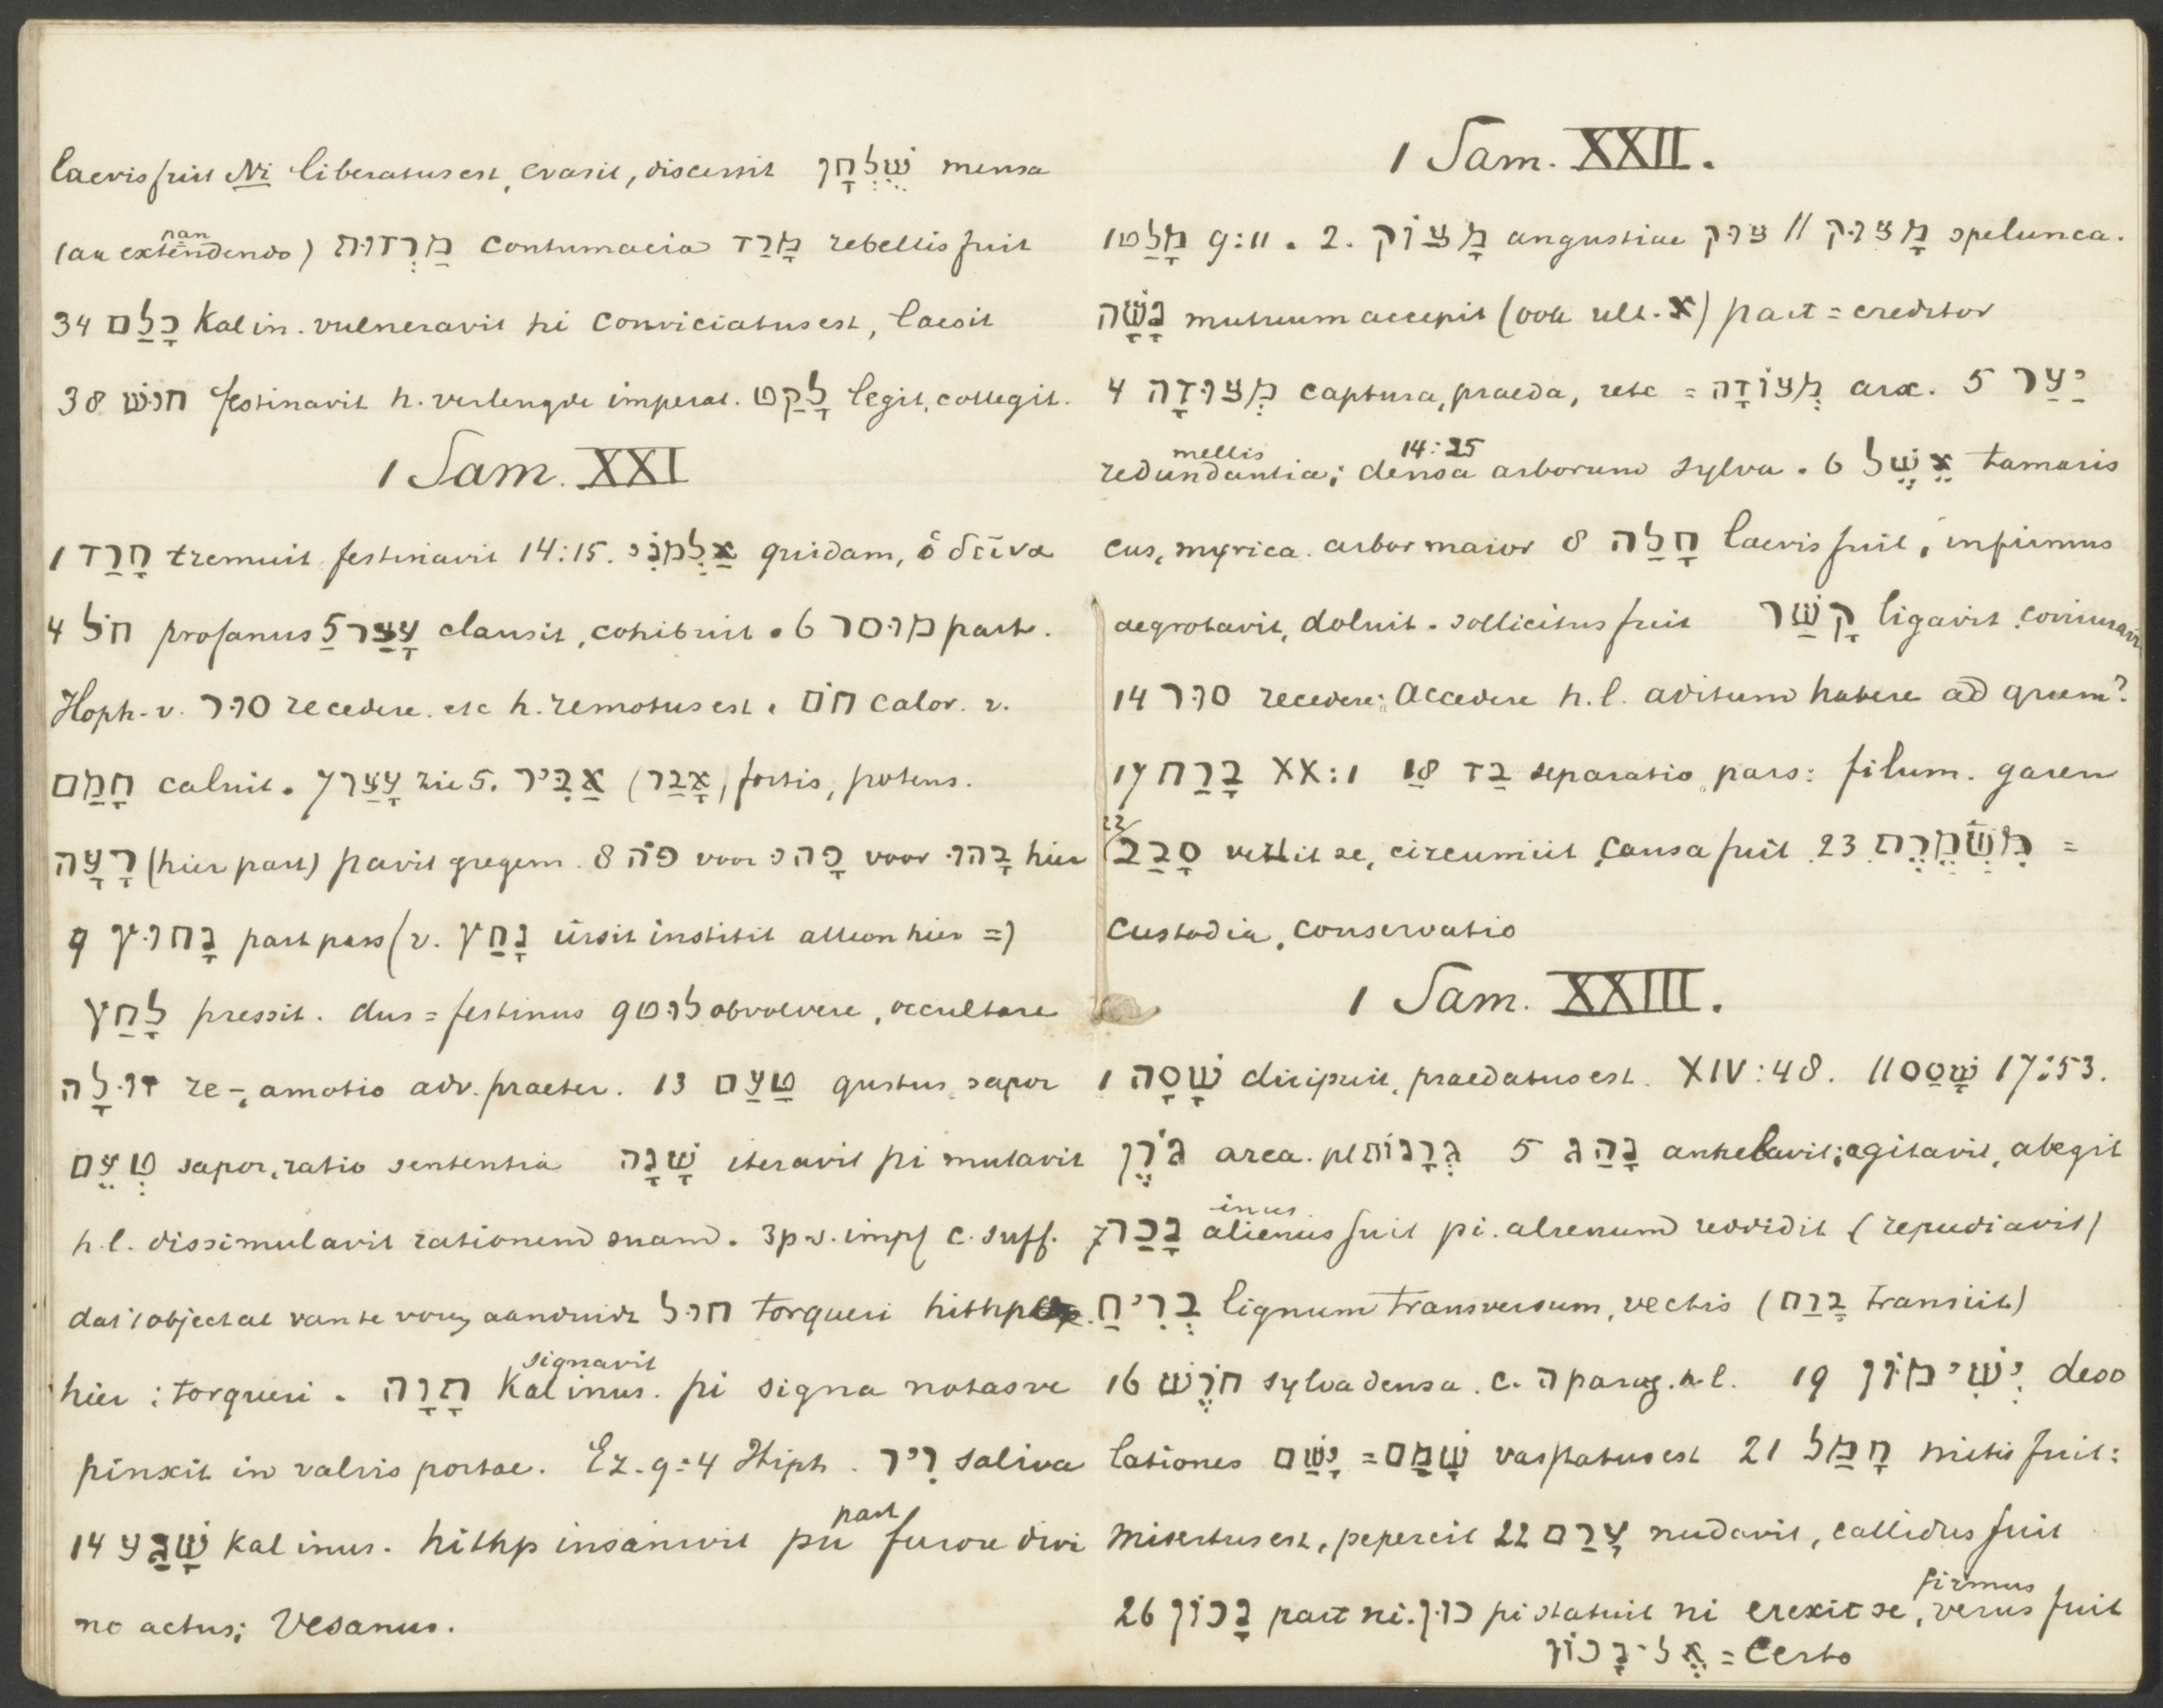 laevis fuit Ni liberatus est, evasit, discessit שֻׁלְחָן mensa
(an extendendo) מַרְדוּת contumacia מָרַד rebellis fuit
nan
34 כָּלַם Kal in. vulneravit hi conviciatus est, laesit
38 חוּשׁ festinavit h. verlengde imperat. לָקַט legit, collegit.
1 Sam. XXI
1 חָרַד tremuit festinavit 14:15. אַלְמֹנִי quidam, ὁ δεῖνα
4 חֹל profanus 5 עָצַר clausit, cohibuit. 6 מוּסר part.
Hoph. v. סוּר recedere. etc h. remotus est. חֹם calor. v.
חָמַם caluit. 7 עָצַר zie 5. אַבִּיר (אָבַר) fortis, potens.
רָעָה (hier part) pavit gregem. 8 פֹּה voor פָּהִ voor בָּהוּ hier
9 נָחוּץ part pass (v. נָחַץ ursit institit alleen hier =)
לָחַץ pressit. dus = festinus 9 לוּט obvolvere, occultare
זוּלָה re-, amotio adv. praeter. 13 טַעַם gustus, sapor
טְעֵם sapor, ratio sententia שָׁנָה iteravit pi mutavit
h.l. dissimulavit rationem suam. 3 p.s. impf c. suff.
dat 't object al van te vorg aanduidt חוּל torqueri hithp.
hier: torqueri. תָּוָה Kal inus. pi signa notasve
signavit
pinxit in valvis portae. Ez. 9:4 Hiph. רִיר saliva
14 שָׁגַע Kal inus. hithp insanivit pu part furore divi
no actus; vesanus.
1 Sam. XXII.
1 מָלַט 9:11. 2. מָצוֹק angustiae צוּק // מָצוּק spelunca.
נָשָׁה mutuum accepit (ook ult. א) part = creditor
4 מְצוּדָה captura, praeda, rete = מְצוֹדָה arx. 5 יַעַר
mellis 14:25
redundantia; densa arborum sylva. 6 אֵשֶׁל tamaris
cus, myrica. arbor maior 8 חָלַה laevis fuit, infirmus
aegrotavit, doluit. sollicitus fuit קָשַׁר ligavit, coniuravit
14 סוּר recedere; accedere h.l. aditum habere ad quem?
17 בָּרַח XX:1 18 בַד separatio, pars: filum. garen
22/ סָבַב vertit se, circumiit, causa fuit. 23 מִשְׁמֶרֶת =
custodia, conservatio
1 Sam. XXIII.
1 שָׁסָה diripuit, praedatus est. XIV:48. // שָׁסַס 17:53.
גֹּרֶן area. pl גְּרָנוֹת 5 נָהַג anhelavit; agitavit, abegit
inus.
7 נָכַר alienus fuit pi. alienum reddidit (repudiavit)
בְּרִיחַ lignum transversum, vectis (בָּרַח transiit)
16 חֹרֶשׁ sylva densa. c. ה parag. h.l. 19 יְשִׁימוֹן deso
lationes יָשַׁם = שָׁמַם vastatus est 21 חָמַל mitis fuit:
misertus est, pepercit 22 עָרַם nudavit, callidus fuit
firmus
26 נָכוֹן part ni. כּוּן pi statuit ni erexit se, verus fuit
אֶל־נָכוֹן = certo